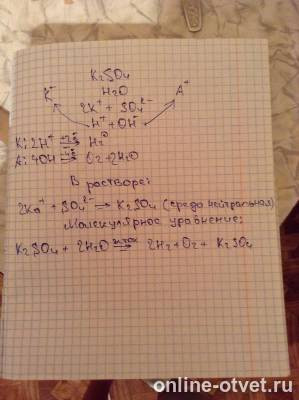 K₂SO₄
H₂O
K⁻ 2K⁺ + SO₄²⁻ A⁺
H⁺ + OH⁻
K: 2H⁺ +2ē→ H₂⁰
A: 4OH -4ē→ O₂ + 2H₂O
В растворе:
2Ka⁺ + SO₄²⁻ → K₂SO₄ (среда нейтральная)
Молекулярное уравнение:
K₂SO₄ + 2H₂O эл.ток→ 2H₂ + O₂ + K₂SO₄
online-otvet.ru